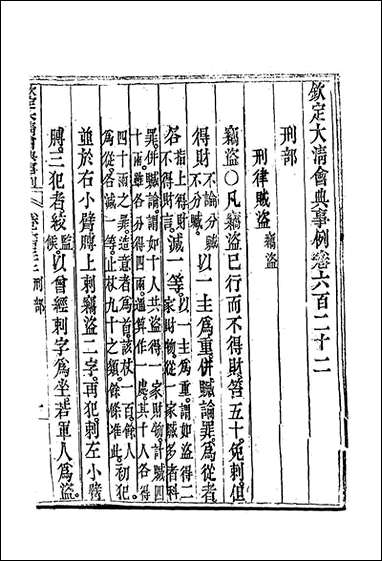 欽定大清會典事例卷六百二十二
刑部
刑律賊盜 竊盜
竊盜○凡竊盜已行而不得財笞五十免刺但
得財 不論分贓不分贓 以一主爲重併贓論罪爲從者
各 指上得財不得財言 減一等 以一主爲重謂如盜得二家財物從一家贓多者科
罪併贓論謂如十人共盜得一家財物計贓四十兩雖各分得四兩通算作一處其十人各得
四十兩之罪造意者爲首該杖一百餘人爲從各減一等止杖九十之類餘條准此 初犯
並於右小臂膊上刺竊盜二字再犯刺左小臂
膊三犯者絞 監候 以曾經刺字爲坐若軍人爲盜
刑部